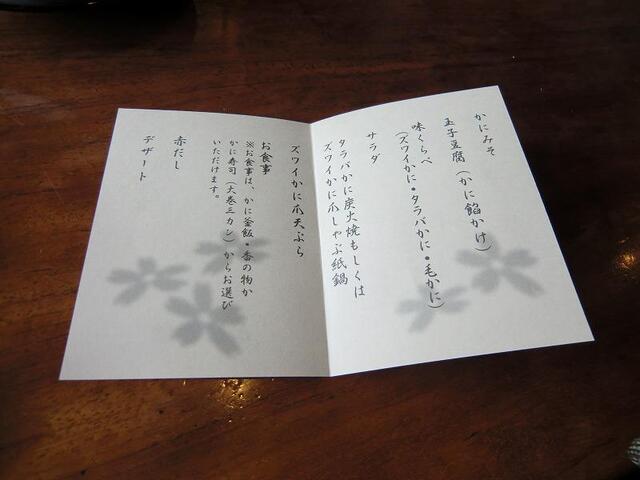 かにみそ
玉子豆腐（かに餡かけ）
味くらべ
（ズワイかに・タラバかに・毛かに）
サラダ
タラバかに炭火焼もしくは
ズワイかに爪しゃぶ紙鍋
ズワイかに爪天ぷら
お食事
※お食事は、かに釜飯・香の物か
かに寿司（大巻三カン）からお選び
いただけます。
赤だし
デザート